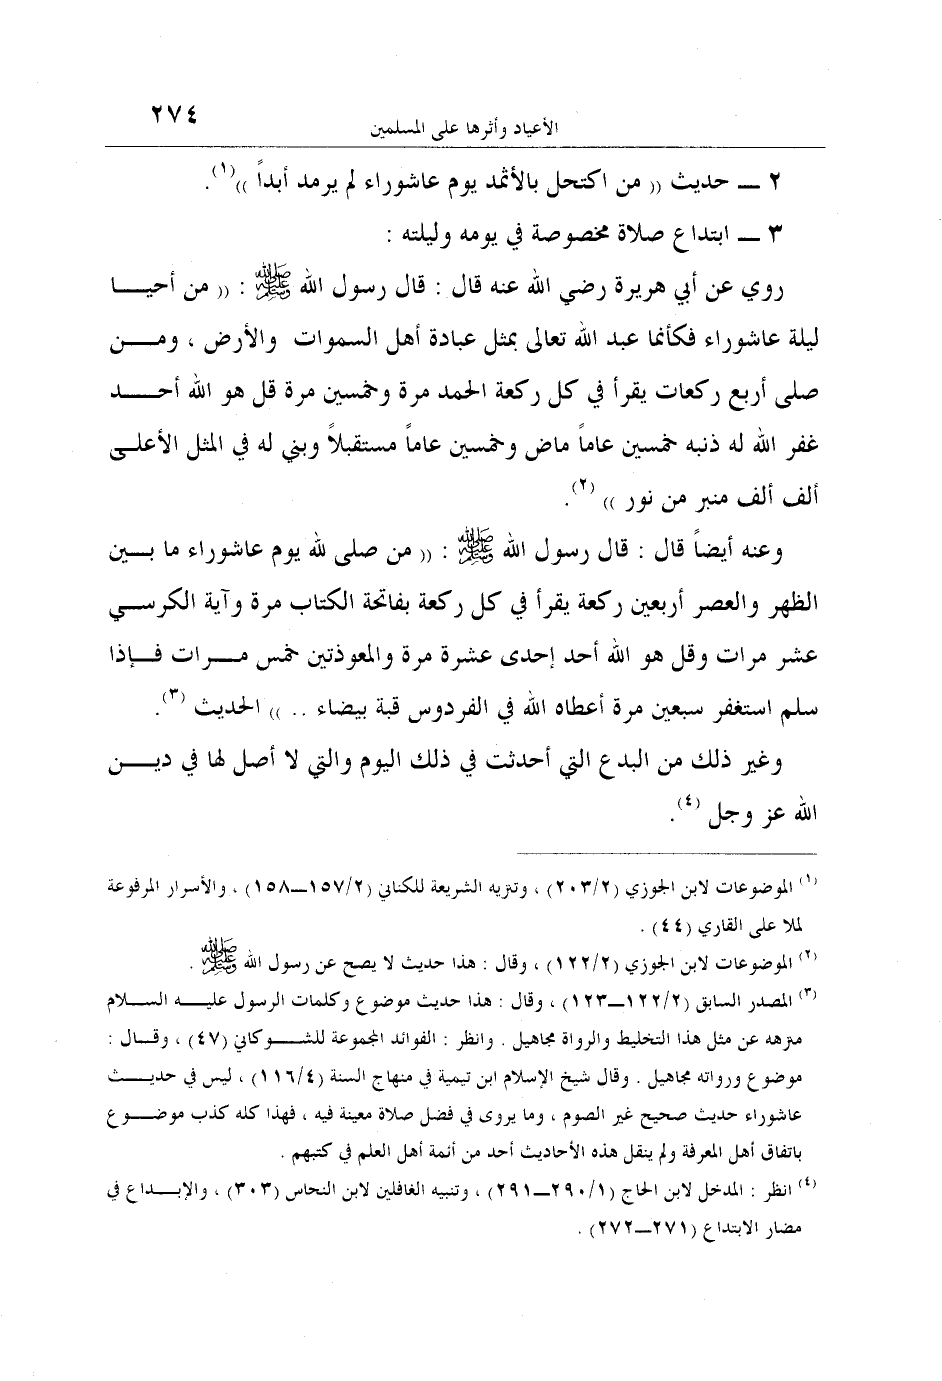 ٢٧٤
الأعياد وأثرها على المسلمين
٢ ــ حديث (( من اكتحل بالأثمد يوم عاشوراء لم يرمد أبداً ))(١).
٣ ــ ابتداع صلاة مخصوصة في يومه وليلته :
روي عن أبي هريرة رضي الله عنه قال : قال رسول الله ﷺ : (( من أحيا
ليلة عاشوراء فكأنما عبد الله تعالى بمثل عبادة أهل السموات والأرض ، ومن
صلى أربع ركعات يقرأ في كل ركعة الحمد مرة وخمسين مرة قل هو الله أحد
غفر الله له ذنبه خمسين عاماً ماض وخمسين عاماً مستقبلاً وبني له في المثل الأعلى
ألف ألف منبر من نور )) (٢).
وعنه أيضاً قال : قال رسول الله ﷺ : (( من صلى لله يوم عاشوراء ما بين
الظهر والعصر أربعين ركعة يقرأ في كل ركعة بفاتحة الكتاب مرة وآية الكرسي
عشر مرات وقل هو الله أحد إحدى عشرة مرة والمعوذتين خمس مرات فإذا
سلم استغفر سبعين مرة أعطاه الله في الفردوس قبة بيضاء .. )) الحديث (٣).
وغير ذلك من البدع التي أحدثت في ذلك اليوم والتي لا أصل لها في دين
الله عز وجل (٤).
(١) الموضوعات لابن الجوزي (٢٠٣/٢) ، وتنزيه الشريعة للكناني (١٥٧/٢ــ١٥٨) ، والأسرار المرفوعة
لملا على القاري (٤٤) .
(٢) الموضوعات لابن الجوزي (١٢٢/٢) ، وقال : هذا حديث لا يصح عن رسول الله ﷺ .
(٣) المصدر السابق (١٢٢/٢ــ١٢٣) ، وقال : هذا حديث موضوع وكلمات الرسول عليه السلام
منزهه عن مثل هذا التخليط والرواة مجاهيل . وانظر : الفوائد المجموعة للشوكاني (٤٧) ، وقال :
موضوع ورواته مجاهيل . وقال شيخ الإسلام ابن تيمية في منهاج السنة (١١٦/٤) ، ليس في حديث
عاشوراء حديث صحيح غير الصوم ، وما يروى في فضل صلاة معينة فيه ، فهذا كله كذب موضوع
باتفاق أهل المعرفة ولم ينقل هذه الأحاديث أحد من أئمة أهل العلم في كتبهم .
(٤) انظر : المدخل لابن الحاج (٢٩٠/١ــ٢٩١) ، وتنبيه الغافلين لابن النحاس (٣٠٣) ، والإبداع في
مضار الابتداع (٢٧١ــ٢٧٢) .